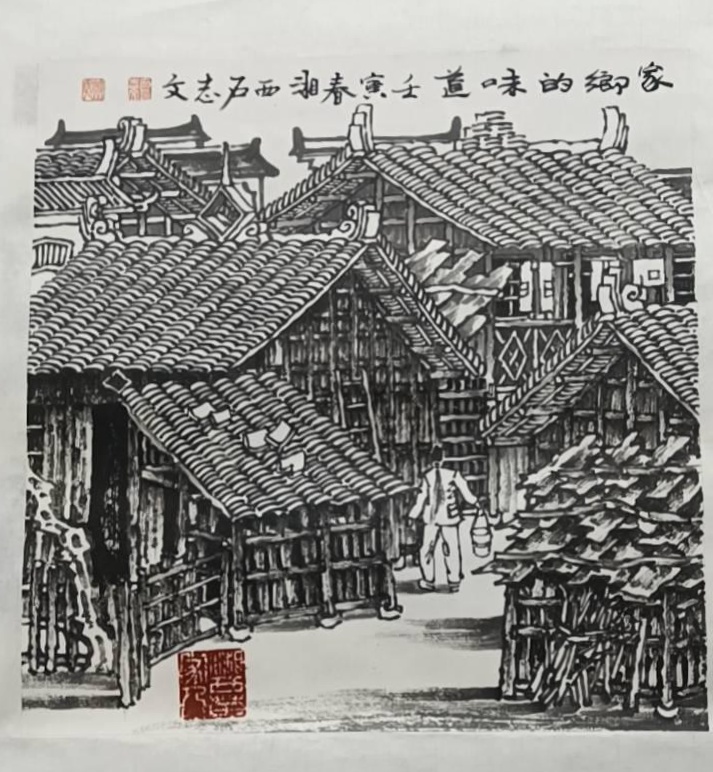 家鄉的味道壬寅春湘西石志文